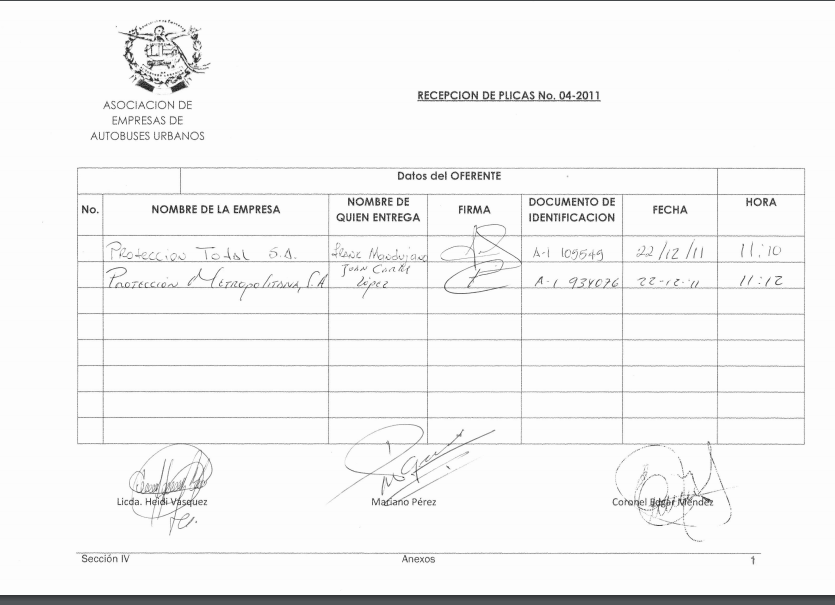 ASOCIACION DE
EMPRESAS DE
AUTOBUSES URBANOS
RECEPCION DE PLICAS No. 04-2011
Datos del OFERENTE
No. NOMBRE DE LA EMPRESA NOMBRE DE QUIEN ENTREGA FIRMA DOCUMENTO DE IDENTIFICACION FECHA HORA
Proteccion Total S.A. Irene Mandujano A-1 109549 22/12/11 11:10
Protección Metropolitana, S.A Juan Carlos López A-1 934076 22-12-11 11:12
Licda. Heidi Vásquez Mariano Pérez Coronel Edgar Méndez
Sección IV Anexos 1